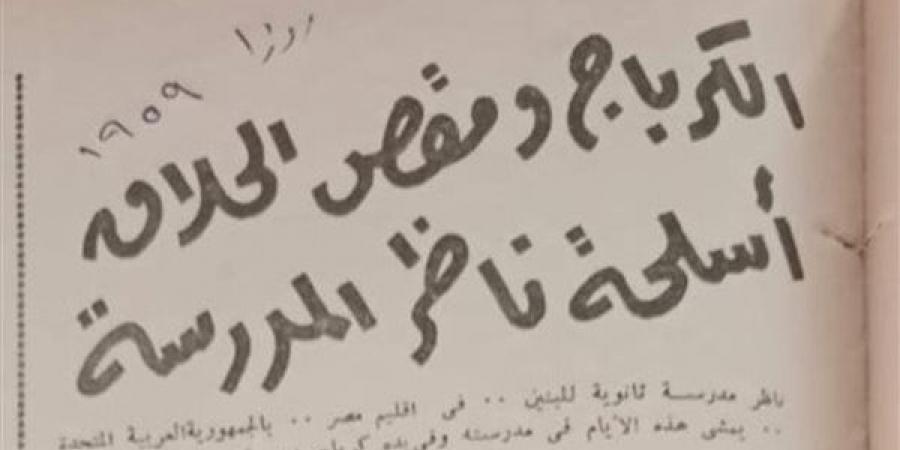 روزا
١٩٥٩
الكرباج ومقص الحلاق
أسلحة ناظر المدرسة
ناظر مدرسة ثانوية للبنين .. فى اقليم مصر .. بالجمهورية العربية المتحدة
.. يمشى هذه الأيام فى مدرسته وفى يده